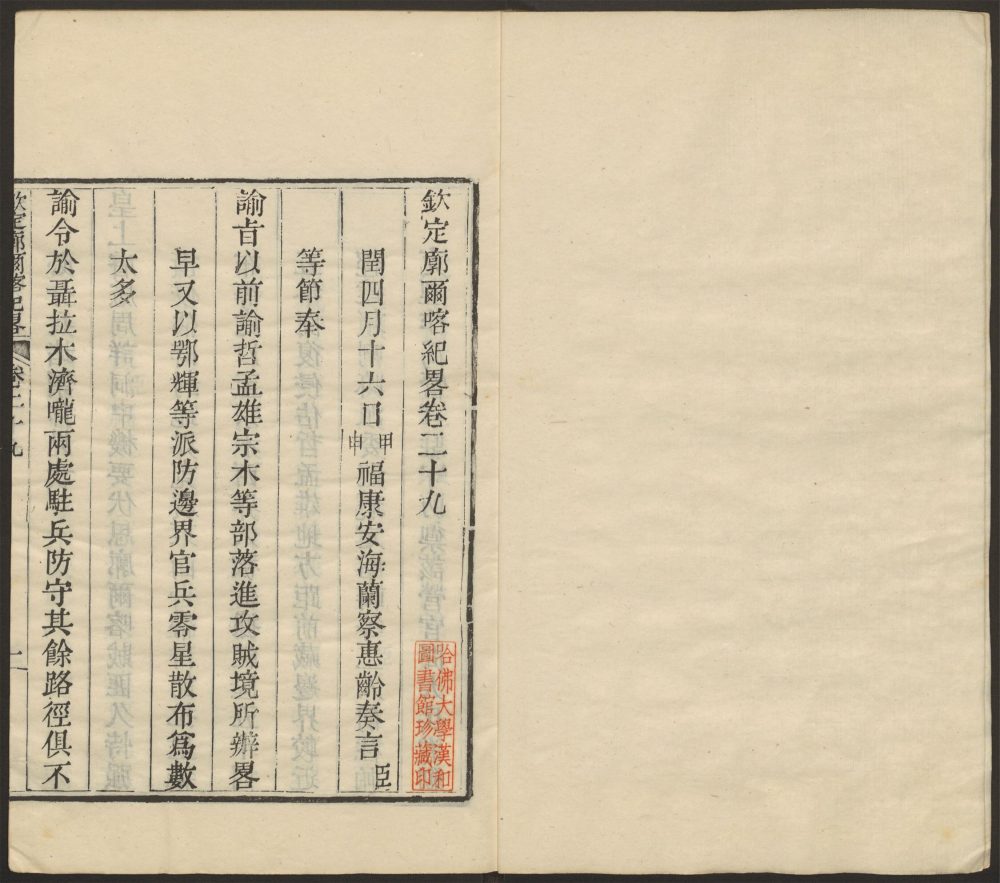 欽定廓爾喀紀畧卷三十九
閏四月十六日甲申福康安海蘭察惠齡奏言臣
等節奉
諭旨以前諭哲孟雄宗木等部落進攻賊境所辦畧
早又以鄂輝等派防邊界官兵零星散布爲數
太多
諭令於聶拉木濟嚨兩處駐兵防守其餘路徑俱不
欽定廓爾喀紀畧
卷二十九
一
哈佛大學漢和
圖書館珍藏印